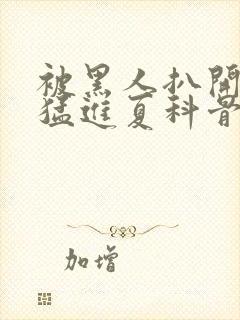 被黑人扒開
猛進夏科青
加增